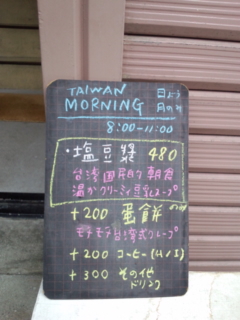 TAIWAN
MORNING
日よう
月のみ
8:00-11:00
・塩豆漿 480
台湾国民的朝食
温かクリーミィ豆乳スープ
+200 蛋餅
モチモチ台湾式クレープ
+200 コーヒー(H/I)
+300 その他
ドリンク